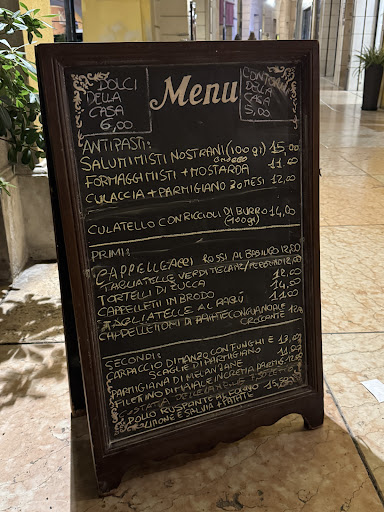 DOLCI
DELLA
CASA
6,00
Menu
CONTORNI
DELLA
CASA
5,00
ANTIPASTI:
SALUMI MISTI NOSTRANI (100 gr) 15,00
FORMAGGI MISTI + MOSTARDA 11,00
CULACCIA + PARMIGIANO 30 MESI 12,00
CULATELLO CON RICCIOLI DI BURRO 14,00
(100gr)
PRIMI:
CAPPELLACCI ROSSI AL BASILICO 12,00
TAGLIATELLE VERDI
TORTELLI DI ZUCCA 12,00
CAPPELLETTI IN BRODO 14,00
TAGLIATELLE AL RAGÙ 11,00
CROCCANTE
SECONDI:
CARPACCIO DI MANZO CON FUNGHI E 13,00
SCAGLIE DI PARMIGIANO
PARMIGIANA DI MELANZANE 11,00
FILETTINO DI MAIALE IN CREMA PARMIG. 12,00
POLLO RUSPANTE AL FORNO 15,00
LIMONE E SALVIA + PATATE